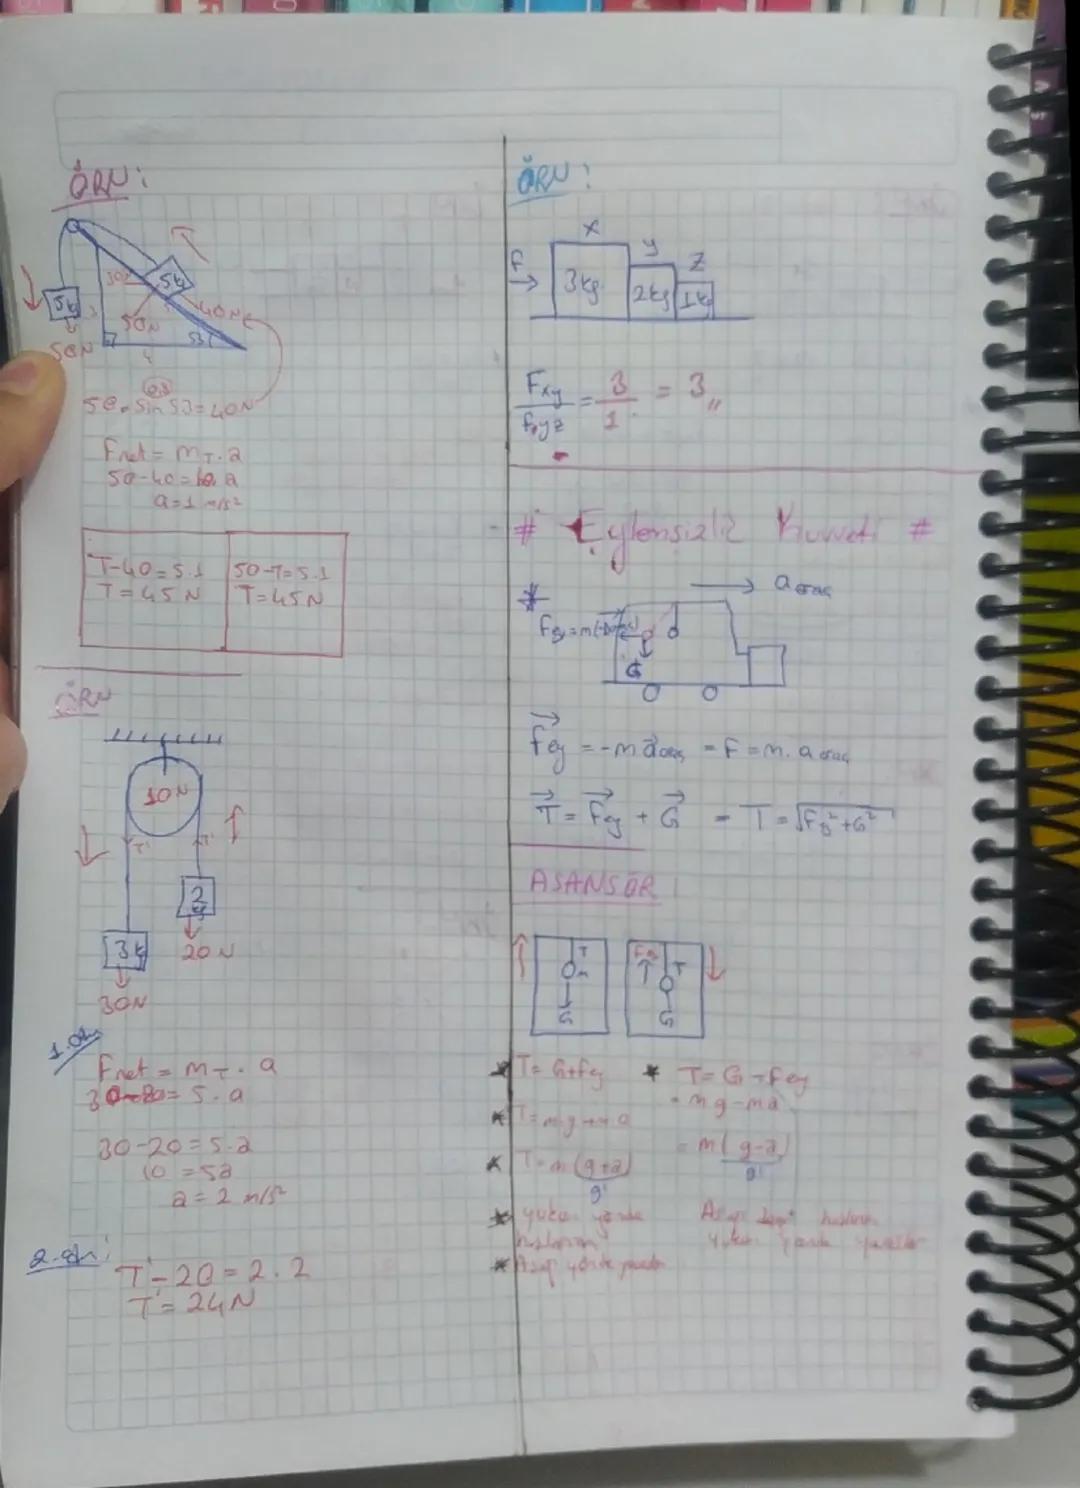 ÖRN:
5kg
5kg
30N
40N
50N
50N
53
3
4
0,8
50.Sin53=40N
Fnet = mT.a
50-40=10.a
a=1 m/s²
T-40=5.1
T=45N
50-T=5.1
T=45N
ÖRN
10N
T'
T'
2 kg
3kg
20N
30N
Fnet = mT.a
= 5.a
30-20=5.a
10=5a
a=2 m/s²
T'-20=2.2
T'=24N
ÖRN:
x
y
z
F
3kg
2kg
1kg
Fxy/Fyz = 3/1 = 3,,
# Eylemsizlik Kuvveti #
* a araç
G
Fey = -m a araç = F = m.a araç
T = Fey + G = T = √Fey²+G²
ASANSÖR
T
m
G
Fey
T
G
* T= G+Fey
* T=m.g+m.a
* T=m(g+a)
g'
* yukarı yönde
hızlanan
* Aşağı yönde yavaşlar
* T= G-Fey
= mg-ma
= m(g-a)
g'
Aşağı hızlanan
yukarı yönde yavaşlar